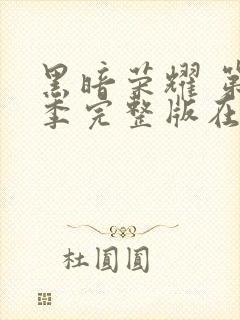 黑暗荣耀 第
季完整版在
杜圆圆